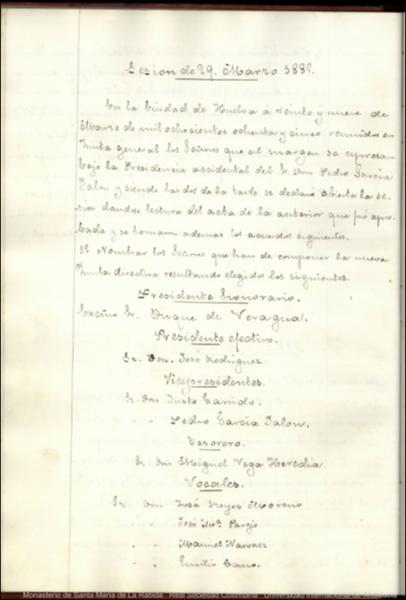 Sesion de 29. Marzo 1885.
En la Ciudad de Huelva á veinte y nueve de
Marzo de mil ochocientos ochenta y cinco reunidos en
Junta general los Señores que al margen se espresan
bajo la Presidencia accidental del Sr. Don Pedro Garcia
Jalon y siendo las dos de la tarde se declaró abierta la se-
sion dandose lectura del acta de la anterior que fué apro-
bada y se tomaron ademas los acuerdos siguientes.
1º Nombrar los Señores que han de componer la nueva
Junta directiva resultando elegidos los siguientes.
Presidente honorario.
Excmo Sr. Duque de Veragua.
Presidente efectivo.
Sr. Don. José Rodriguez.
Vicepresidentes.
Sr. Don Justo Garrido.
" " Pedro Garcia Jalon.
Tesorero.
Sr. Don Miguel Vega Heredia
Vocales.
Sr. Don José Reyes Moreno
" " José Mª Parejo
" " Manuel Narvaez
" " Emilio Cano.
Monasterio de Santa María de La Rábida Real Sociedad Colombina Universidad Internacional de Andalucía